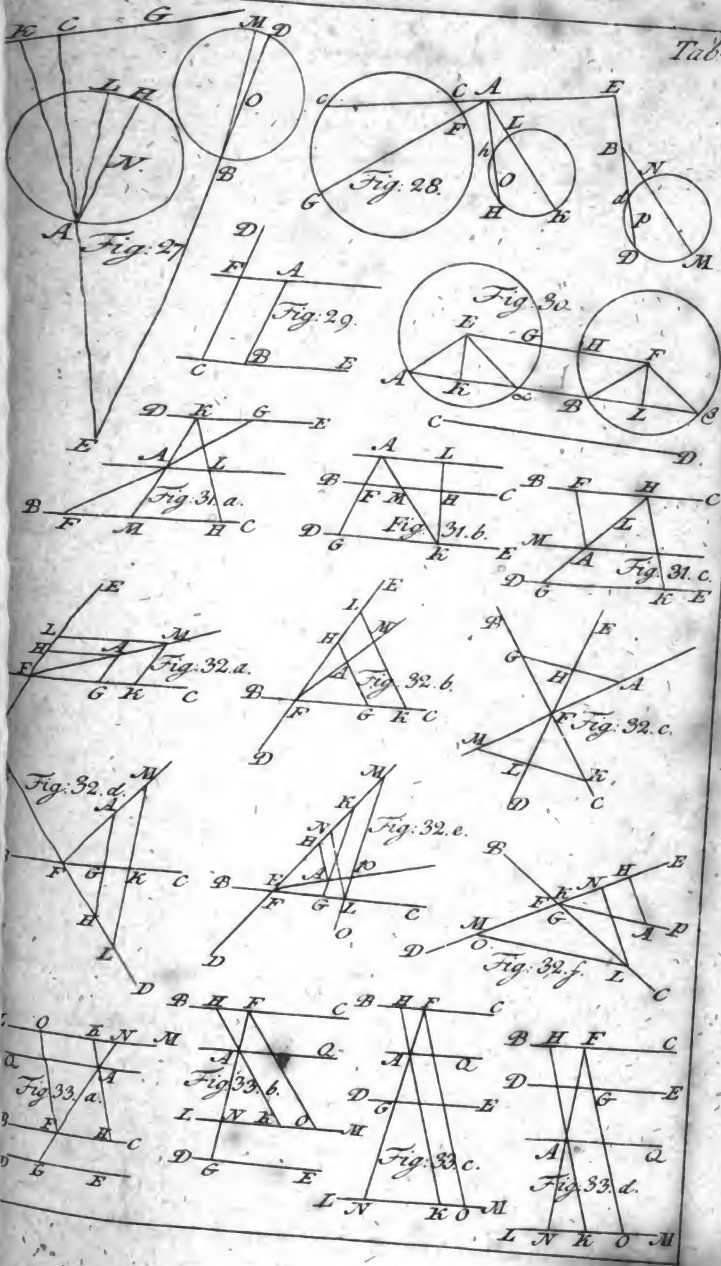 Tab
K C G M D
L H O
N.
B
A Fig: 27
E
C C A E
F L
h B N
O d p
G Fig: 28. H K
D M
D
F A
Fig: 29.
C B E
Fig: 30.
E G H F
A K α B L β
C D
D K G E
A L
Fig: 31. a.
B F M H C
A L
B F M H C
D G Fig 31. b. K E
B F H C
L
M A
Fig. 31. c.
D G K E
E
L H A M
Fig: 32. a.
F G K C
E
L M
H A
Fig: 32. b.
B F G K C
D
B E
G H A
F Fig: 32. c.
M L K
D C
Fig: 32. d.
M
A
F G K C
H
L
D
M
K
N
H Fig: 32. e.
A P
B F G L C
D O
B
N H E
F K
G A P
M
D O L
Fig: 32. f.
C
L O K N M
Q A
Fig 33. a.
B F H C
D G E
B H F C
A Q
Fig: 33. b.
L N K O M
D G E
B H F C
A Q
D G E
Fig: 33. c.
L N K O M
B H F C
D G E
A Q
Fig: 33. d.
L N K O M